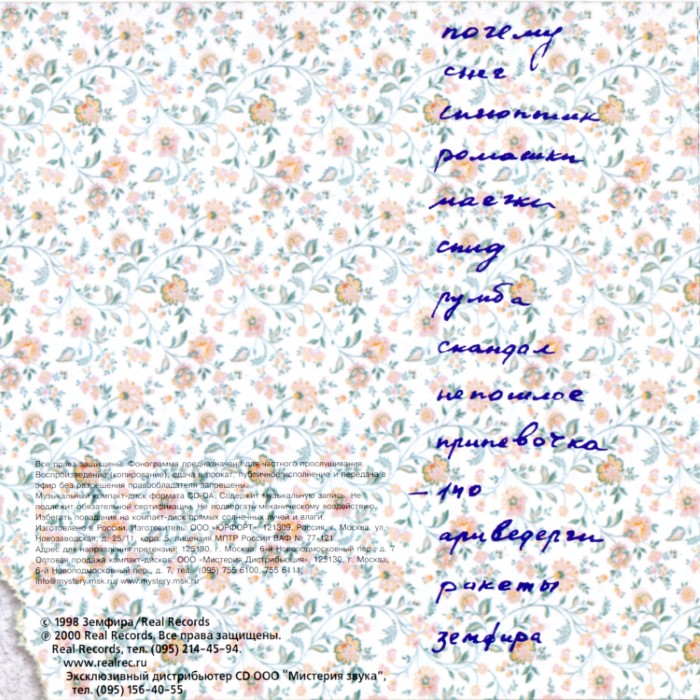 почему
снег
синоптик
ромашки
маечки
спид
румба
скандал
непошлое
припевочка
-140
ариведерчи
ракеты
земфира
Все права защищены. Фонограмма предназначена для частного прослушивания.
Воспроизведение (копирование), сдача в прокат, публичное исполнение и передача в
эфир без разрешения правообладателя запрещены.
Музыкальный компакт-диск формата CD-DA. Содержит музыкальную запись. Не
подлежит обязательной сертификации. Не подвергать механическому воздействию.
Избегать попадания на компакт-диск прямых солнечных лучей и влаги.
Изготовлено в России. Изготовитель: ООО «ЮРФОРТ» 121309, Россия, г. Москва, ул.
Новозаводская, д. 25/11, корп. 5, лицензия МПТР России ВАФ № 77-121.
Адрес для направления претензий: 125130, г. Москва, 6-й Новоподмосковный пер., д. 7
Оптовая продажа компакт-дисков: ООО «Мистерия Дистрибьюция», 125130, г. Москва,
6-й Новоподмосковный пер., д. 7, тел.: (095) 755 6100, 755 6111;
info@mystery.msk.ru www.mystery.msk.ru
© 1998 Земфира/Real Records
℗ 2000 Real Records, Все права защищены.
Real Records, тел. (095) 214-45-94.
www.realrec.ru
Эксклюзивный дистрибьютер CD ООО "Мистерия звука",
тел. (095) 156-40-55